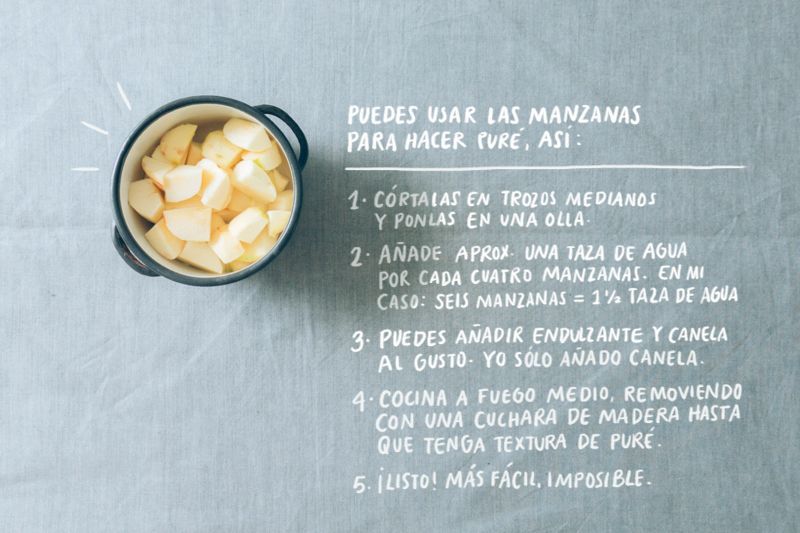 PUEDES USAR LAS MANZANAS
PARA HACER PURÉ, ASÍ:
1. CÓRTALAS EN TROZOS MEDIANOS
Y PONLAS EN UNA OLLA.
2. AÑADE APROX. UNA TAZA DE AGUA
POR CADA CUATRO MANZANAS. EN MI
CASO: SEIS MANZANAS = 1 ½ TAZA DE AGUA
3. PUEDES AÑADIR ENDULZANTE Y CANELA
AL GUSTO. YO SÓLO AÑADO CANELA.
4. COCINA A FUEGO MEDIO, REMOVIENDO
CON UNA CUCHARA DE MADERA HASTA
QUE TENGA TEXTURA DE PURÉ.
5. ¡LISTO! MÁS FÁCIL, IMPOSIBLE.